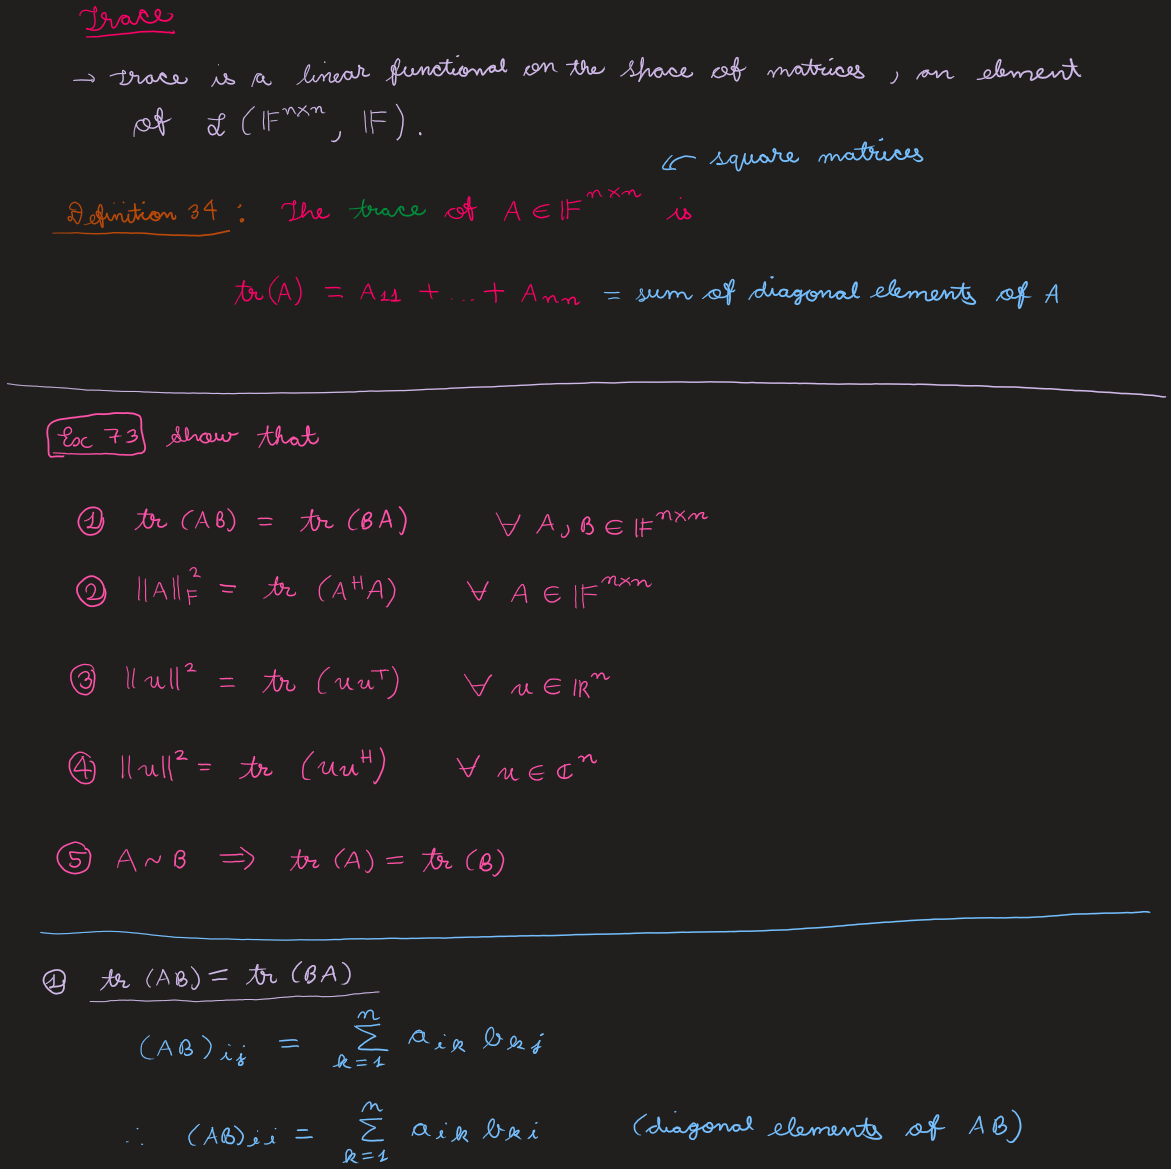 Trace
→ Trace is a linear functional on the space of matrices, an element
of ℒ(𝔽ⁿˣⁿ, 𝔽).
↙ square matrices
Definition 34 : The trace of A ∈ 𝔽ⁿˣⁿ is
tr(A) = A₁₁ + ... + Aₙₙ = sum of diagonal elements of A
Exc 73 show that
① tr (AB) = tr (BA) ∀ A, B ∈ 𝔽ⁿˣⁿ
② ||A||_F² = tr (AᴴA) ∀ A ∈ 𝔽ⁿˣⁿ
③ ||u||² = tr (uuᵀ) ∀ u ∈ ℝⁿ
④ ||u||² = tr (uuᴴ) ∀ u ∈ ℂⁿ
⑤ A ~ B ⇒ tr (A) = tr (B)
① tr (AB) = tr (BA)
(AB)_{ij} = ∑_{k=1}^{n} a_{ik} b_{kj}
∴ (AB)_{ii} = ∑_{k=1}^{n} a_{ik} b_{ki} (diagonal elements of AB)